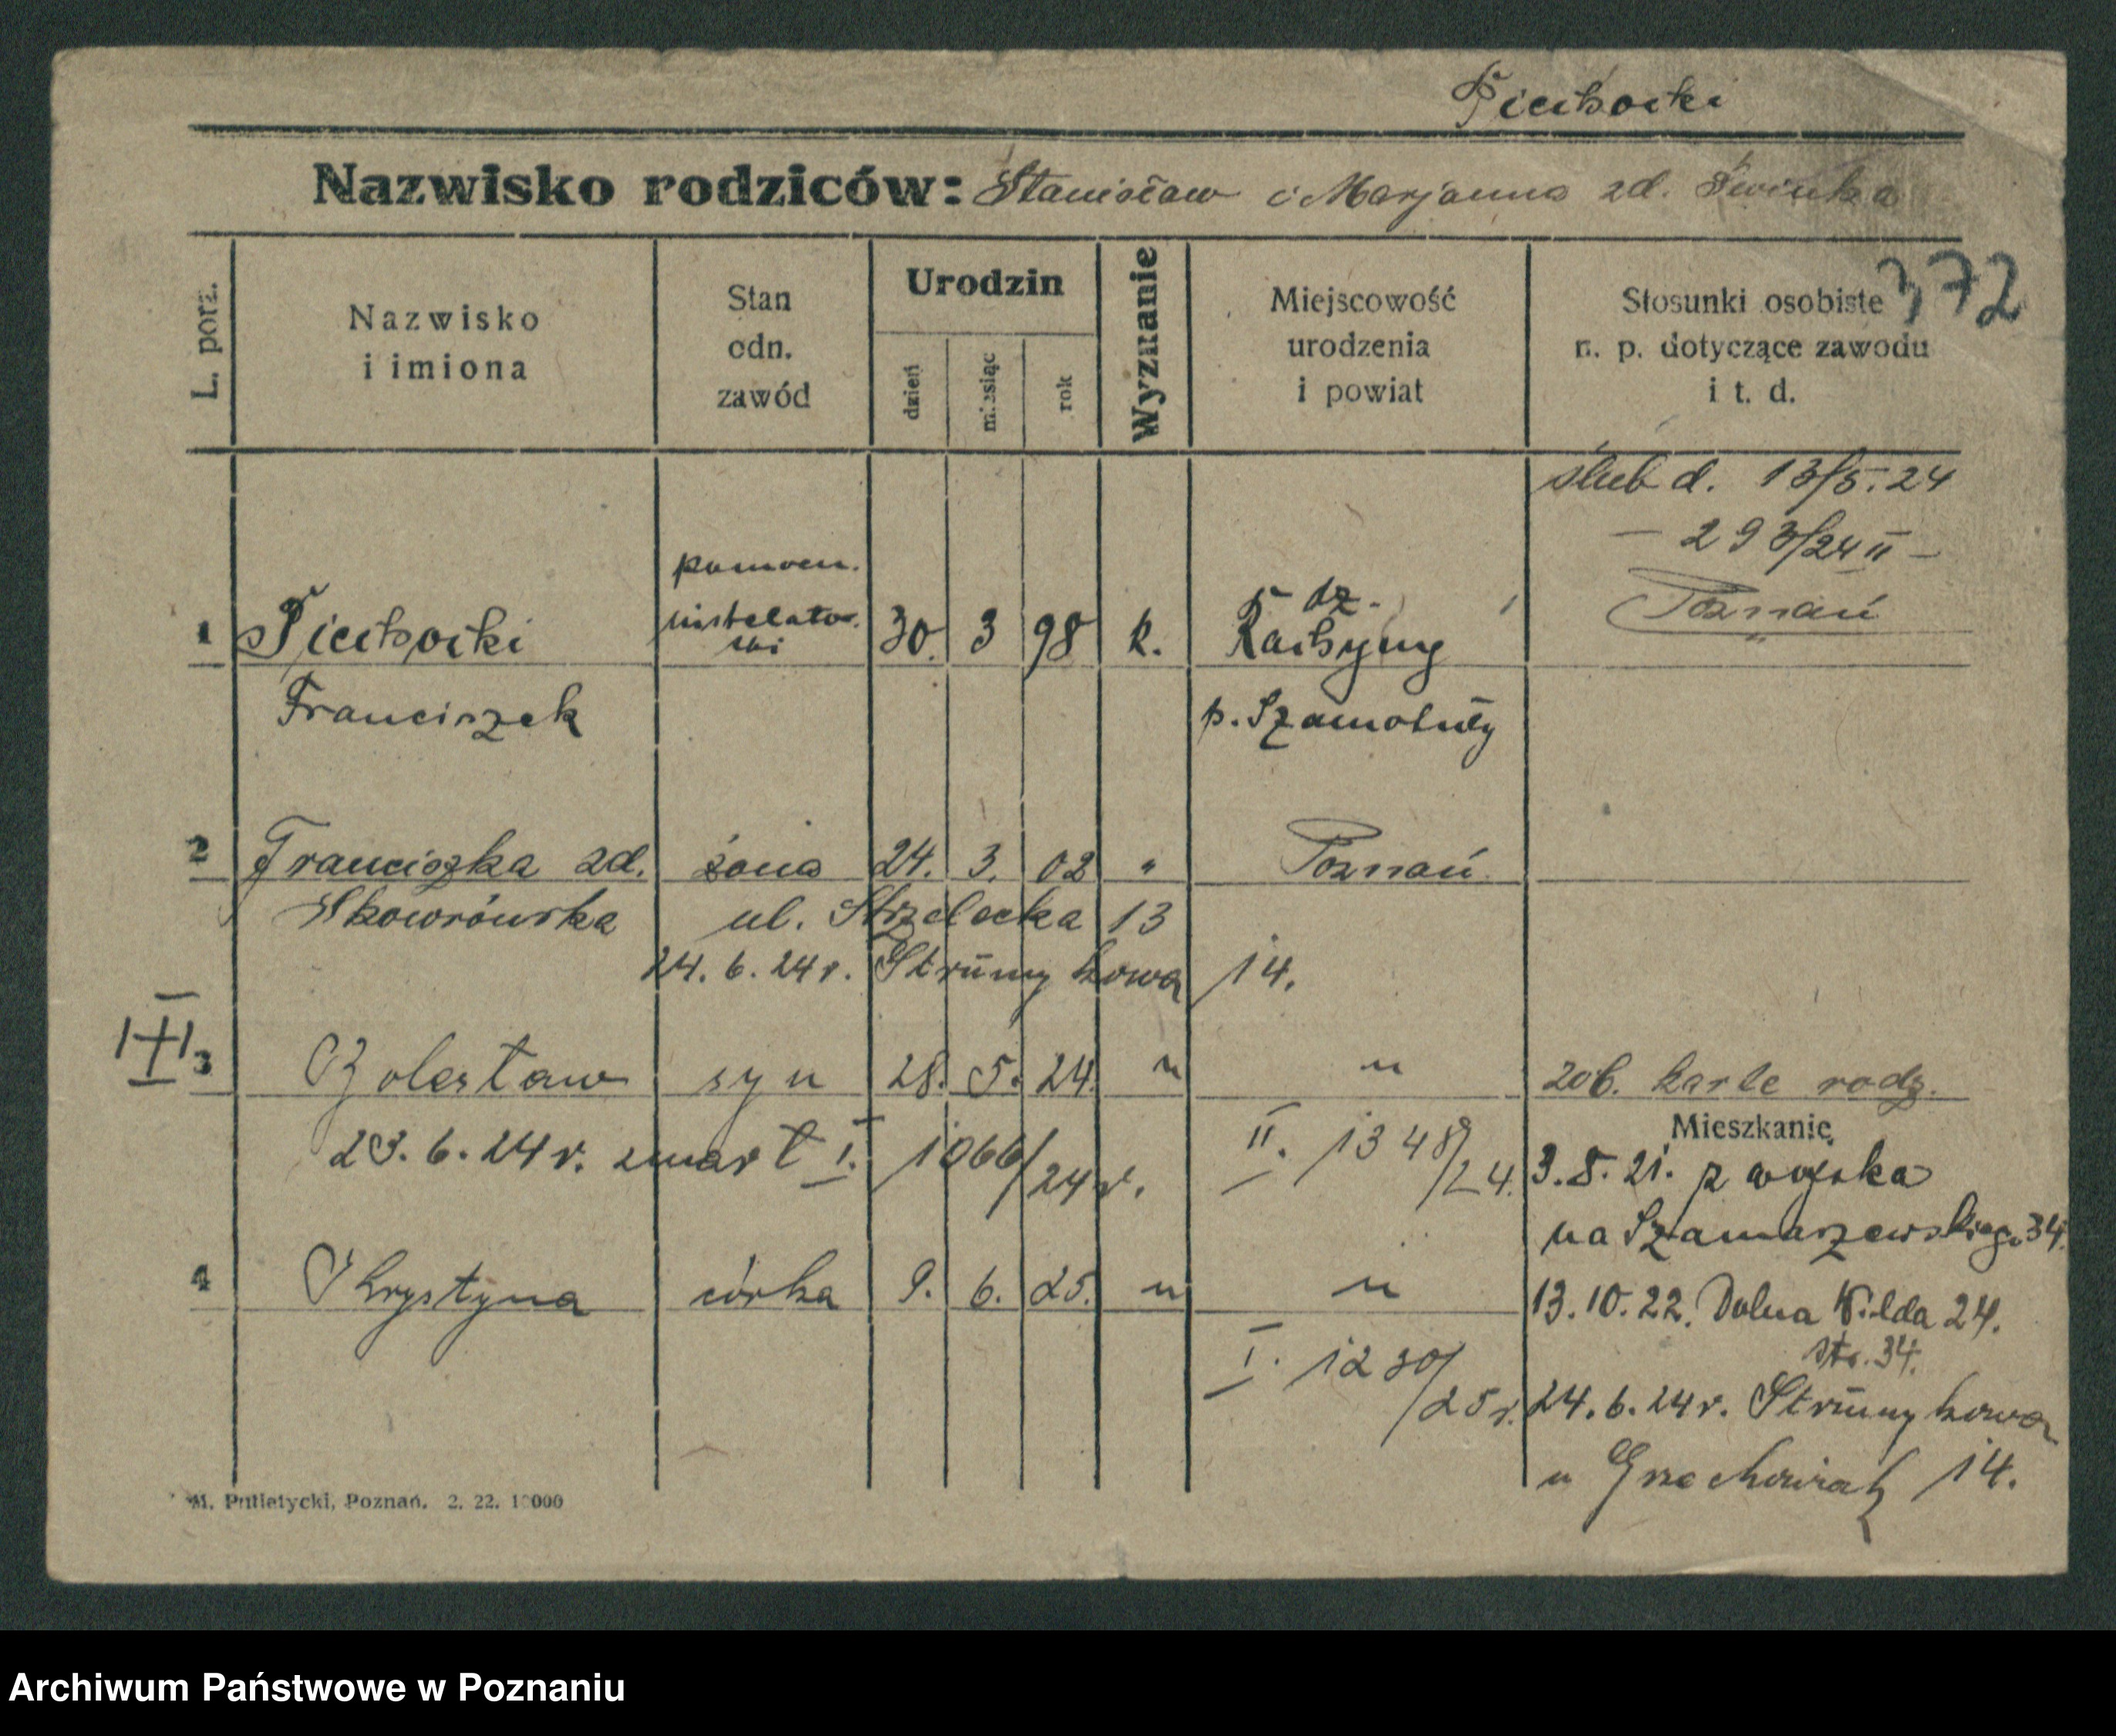 Piechocki
Nazwisko rodziców: Stanisław i Marjanna zd. Świnka
372
L. porz.
Nazwisko i imiona
Stan odn. zawód
Urodzin
dzień
miesiąc
rok
Wyznanie
Miejscowość urodzenia i powiat
Stosunki osobiste n. p. dotyczące zawodu i t. d.
ślub d. 13/5.24
— 293/24 II —
Poznań
pomocn. instalatorski
1 Piechocki 30. 3 98 k. dz.
Franciszek p. Szamotuły
2 Franciszka zd. żona 24. 3. 02 " Poznań
Skowrońska ul. Strzelecka 13
24. 6. 24 r. Strumykowa 14.
3 Bolesław syn 28. 5. 24. " " zob. karte rodz.
23. 6. 24 r. zmarł I. 1066/24 r. II. 1348/24.
Mieszkanie
3. 8. 21. z wojska
na Szamarzewskiego 34.
4 Krystyna córka 9. 6. 25. " "
13. 10. 22. Dolna Wilda 24.
str. 34.
I. 1230/25 r.
24. 6. 24 r. Strumykowa
u Grzechowiak 14.
M. Putiatycki, Poznań. 2. 22. 10000
Archiwum Państwowe w Poznaniu